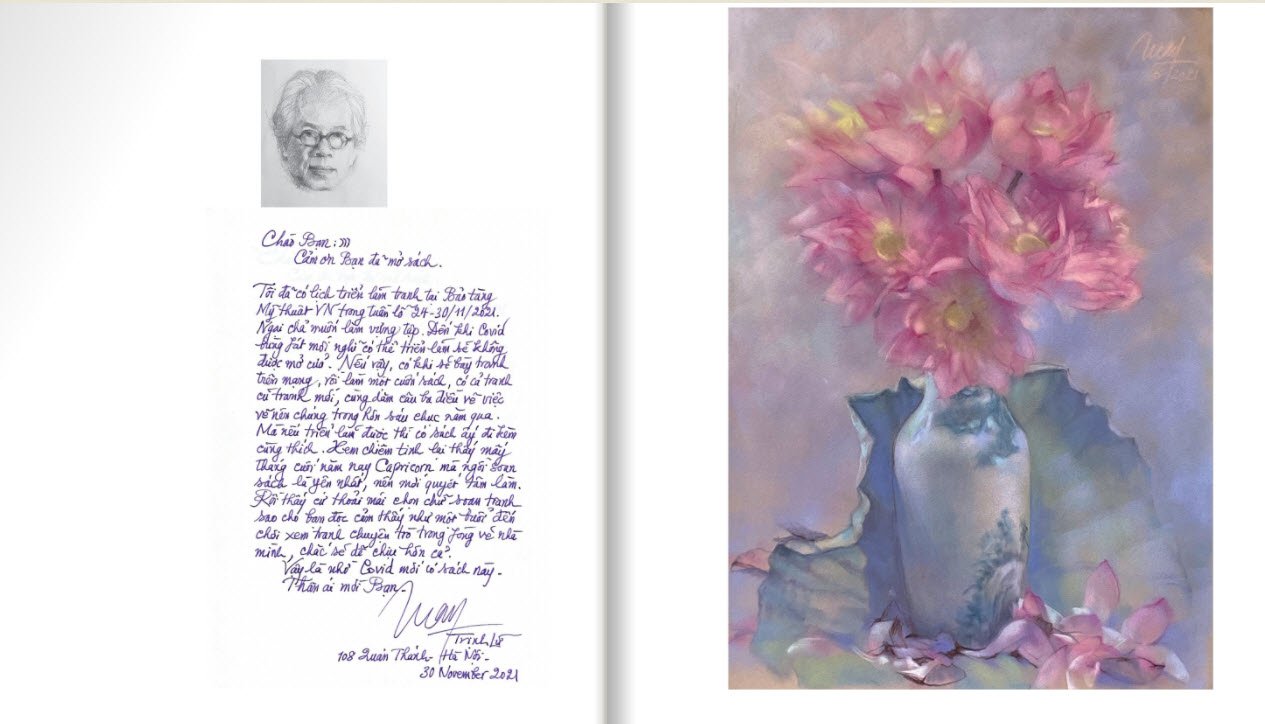 Chào Bạn :)))
Cảm ơn Bạn đã mở sách.
Tôi đã có lịch triển lãm tranh tại Bảo tàng
Mỹ thuật VN trong tuần lễ 24-30/11/2021.
Ngại chả muốn làm vựng tập. Đến khi Covid
bùng phát mới nghĩ có thể triển lãm sẽ không
được mở cửa. Nếu vậy, có khi sẽ bày tranh
trên mạng, rồi làm một cuốn sách, có cả tranh
cũ tranh mới, cùng dăm câu ba điều về việc
vẽ nói chung trong hơn sáu chục năm qua.
Mà nếu triển lãm được thì có sách ấy đi kèm
cũng thích. Xem chiêm tinh lại thấy mấy
tháng cuối năm nay Capricorn mà ngồi soạn
sách là yên nhất, nên mới quyết tâm làm.
Rồi thấy cứ thoải mái chọn chữ soạn tranh
sao cho bạn đọc cảm thấy như một buổi đến
chơi xem tranh chuyện trò trong phòng vẽ nhà
mình, chắc sẽ dễ chịu hơn cả.
Vậy là nhờ Covid mới có sách này.
Thân ái mời Bạn.
Trịnh Lữ
108 Quán Thánh - Hà Nội -
30 November 2021
2021